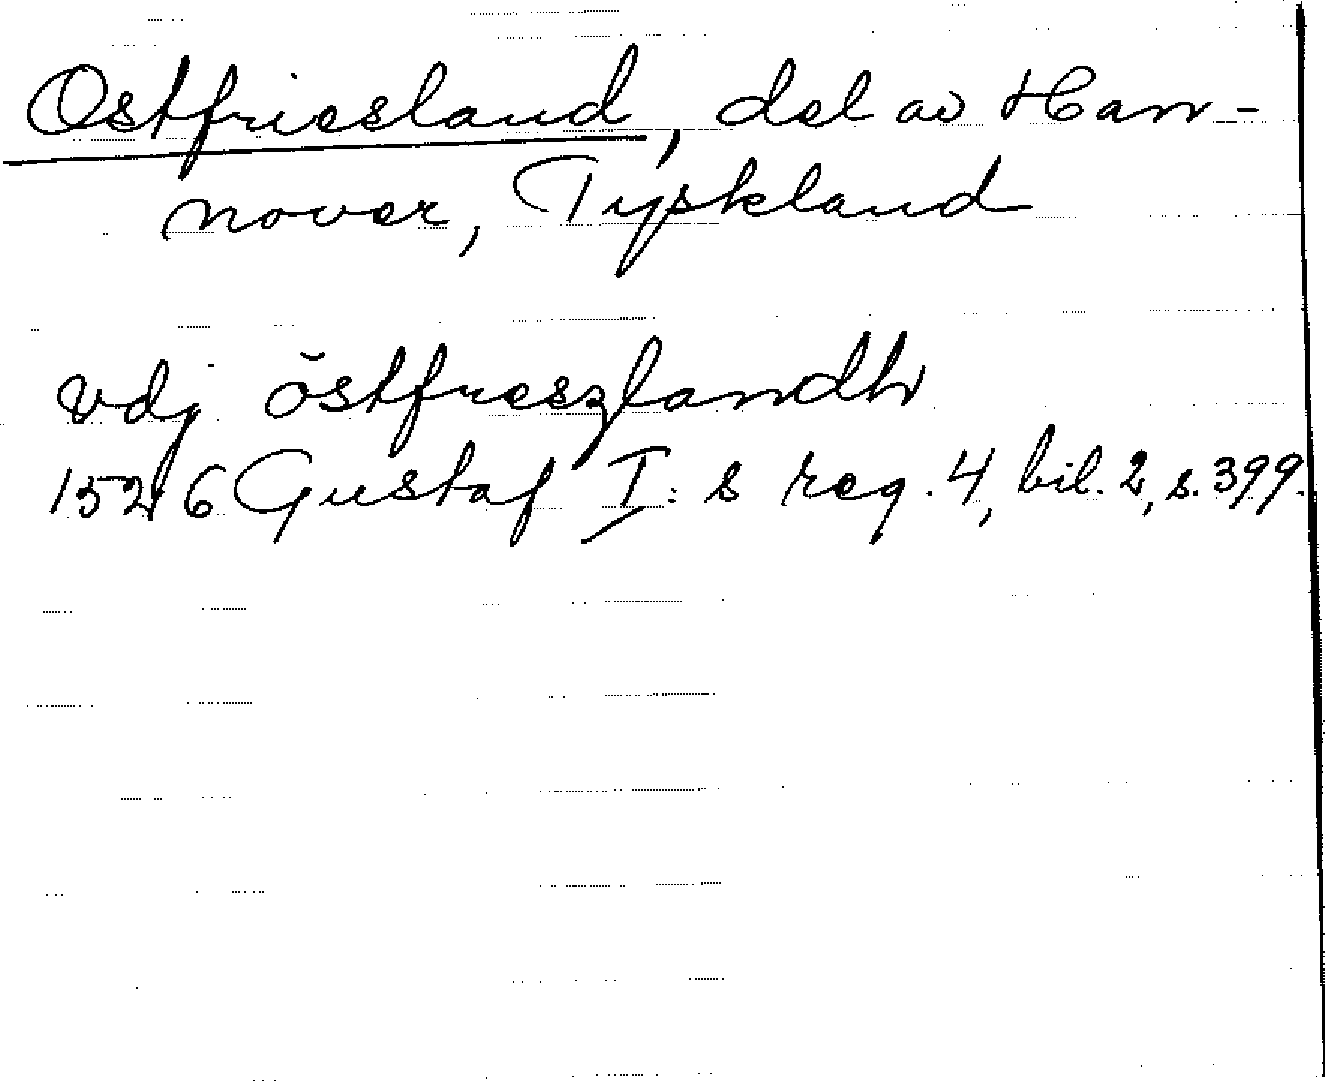 Ostfriesland, del av Han-
nover, Tyskland
vdj östfreszlandh
1526 Gustaf I:s reg. 4, bil. 2, s. 399.